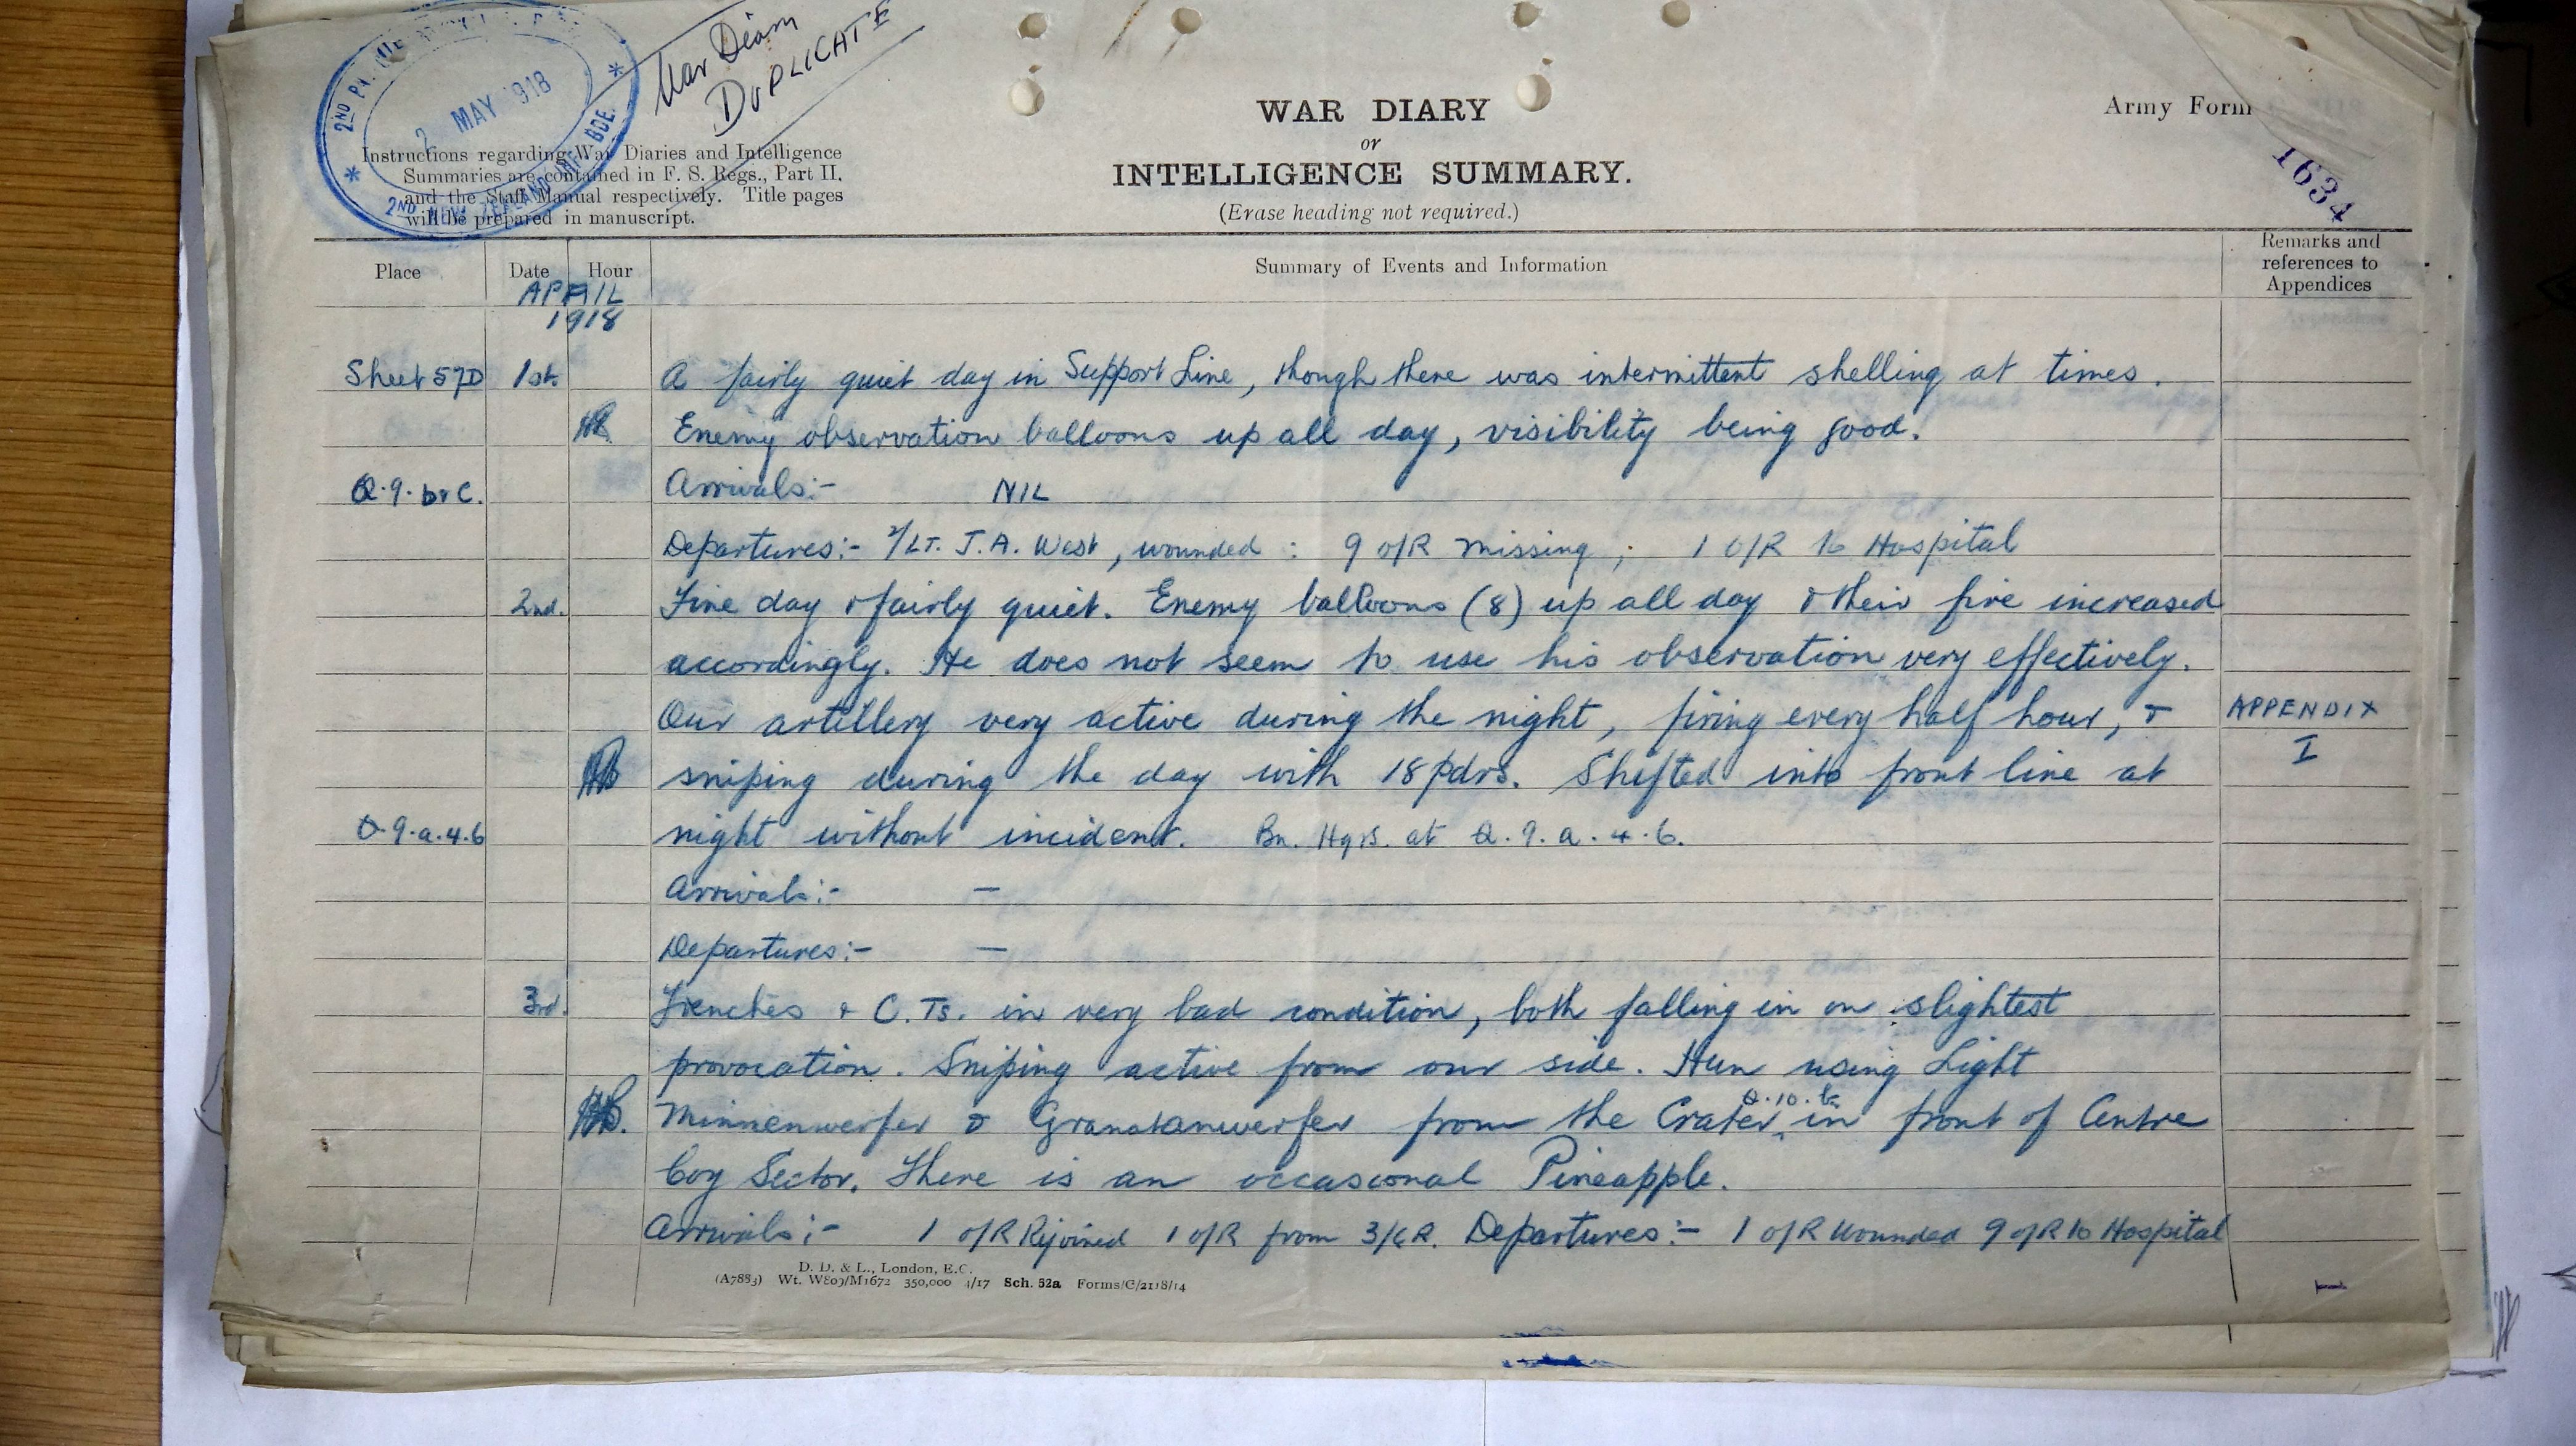 War Diary
DUPLICATE
2ND
2 MAY 1918
2ND NEW ZEALAND INF. BDE.
WAR DIARY
or
INTELLIGENCE SUMMARY.
(Erase heading not required.)
Army Form
1634
Instructions regarding War Diaries and Intelligence
Summaries are contained in F. S. Regs., Part II.
and the Staff Manual respectively. Title pages
will be prepared in manuscript.
Place Date Hour Summary of Events and Information Remarks and references to Appendices
APRIL
1918
Sheet 57D 1st. A fairly quiet day in Support Line, though there was intermittent shelling at times.
Enemy observation balloons up all day, visibility being good.
Q.9.b & c. Arrivals:- NIL
Departures:- 2/LT. J.A. West, wounded : 9 O/R missing ; 1 O/R to Hospital
2nd. Fine day & fairly quiet. Enemy balloons (8) up all day & their fire increased
accordingly. He does not seem to use his observation very effectively.
Our artillery very active during the night, firing every half hour, & APPENDIX
I
sniping during the day with 18 pdrs. Shifted into front line at
Q.9.a.4.6 night without incident. Bn. Hqrs. at Q.9.a.4.6.
Arrivals:- —
Departures:- —
3rd. Trenches & C.Ts. in very bad condition, both falling in on slightest
provocation. Sniping active from our side. Hun using Light
Minnenwerfer & Granatanwerfer from the Crater, Q.10.b in front of Centre
Coy Sector. There is an occasional Pineapple.
Arrivals:- 1 O/R Rejoined 1 O/R from 3/ R. Departures:- 1 O/R Wounded 9 O/R to Hospital
D. D. & L., London, E.C.
(A7883) Wt. W809/M1672 350,000 4/17 Sch. 52a Forms/C/2118/14
1